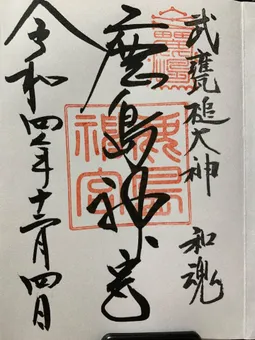 武甕槌大神 和魂
鹿島神宮
令和四年十二月四日
鹿島神宮